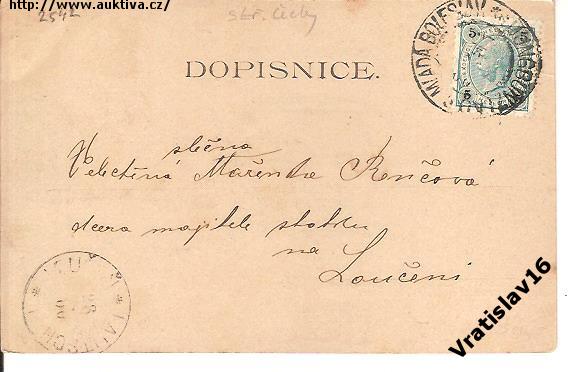 http://www.auktiva.cz/
2542
stř. Čechy
DOPISNICE.
MLADÁ BOLESLAV
5
5
slečna
Veletěná Mařenka Renčová
dcera majitele statku
na
Loučeni
LAUTSCHIN
Vratislav16